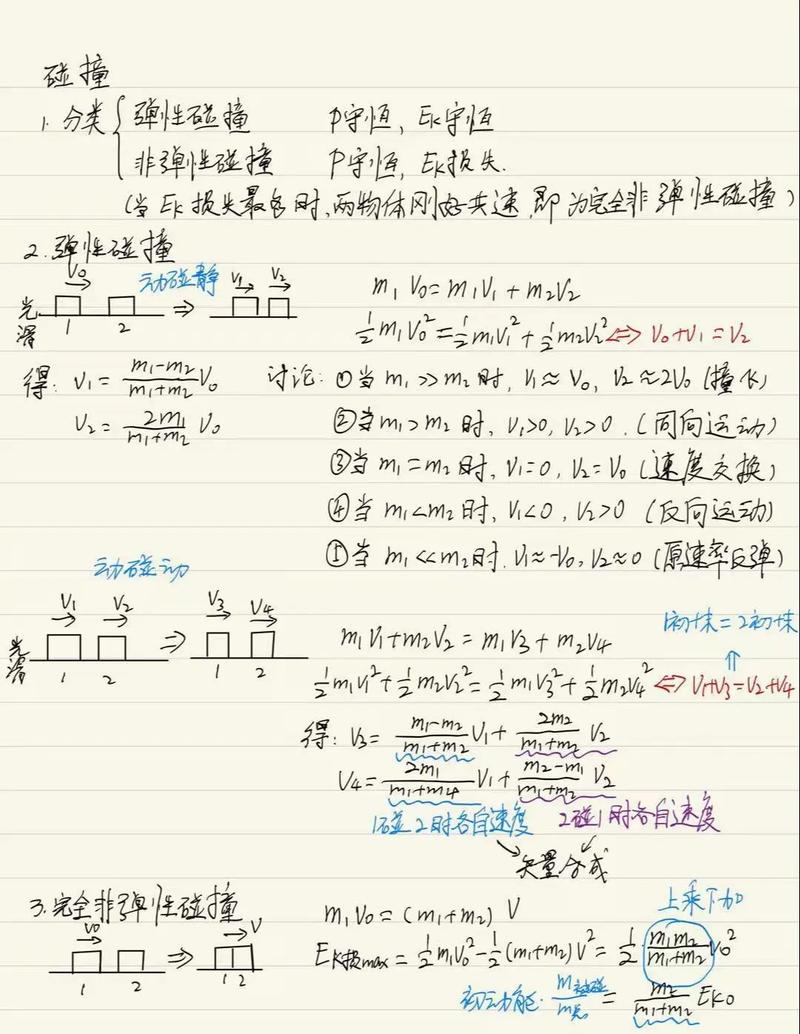 碰撞
1. 分类 { 弹性碰撞 P守恒, Ek守恒
非弹性碰撞 P守恒, Ek损失.
(当Ek损失最多时,两物体刚好共速,即为完全非弹性碰撞)
2. 弹性碰撞
V0 动碰静 V1 V2 m1V0=m1V1+m2V2
光滑 1 2 ⇒ ½m1V0²=½m1V1²+½m2V2² ⇔ V0+V1=V2
得: V1=(m1-m2)/(m1+m2) V0 讨论: ①当m1>>m2时, V1≈V0, V2≈2V0 (撞飞)
V2=2m1/(m1+m2) V0 ②当m1>m2时, V1>0, V2>0. (同向运动)
③当m1=m2时, V1=0, V2=V0 (速度交换)
④当m1<m2时, V1<0, V2>0 (反向运动)
⑤当m1<<m2时. V1≈-V0, V2≈0 (原速率反弹)
动碰动
V1 V2 V3 V4 m1V1+m2V2=m1V3+m2V4 1初+末=2初+末
光滑 1 2 ⇒ 1 2 ½m1V1²+½m2V2²=½m1V3²+½m2V4² ⇔ V1+V3=V2+V4
得: V3=(m1-m2)/(m1+m2) V1+2m2/(m1+m2) V2
V4=2m1/(m1+m4) V1+(m2-m1)/(m1+m2) V2
1碰2时各自速度 2碰1时各自速度
矢量合成
3. 完全非弹性碰撞 m1V0=(m1+m2) V 上乘下加
V0 ⇒ V Ek损max=½m1V0²-½(m1+m2)V²=½·m1m2/(m1+m2) V0²
1 2 1 2 初动能·m被碰/m总=m2/(m1+m2) Ek0